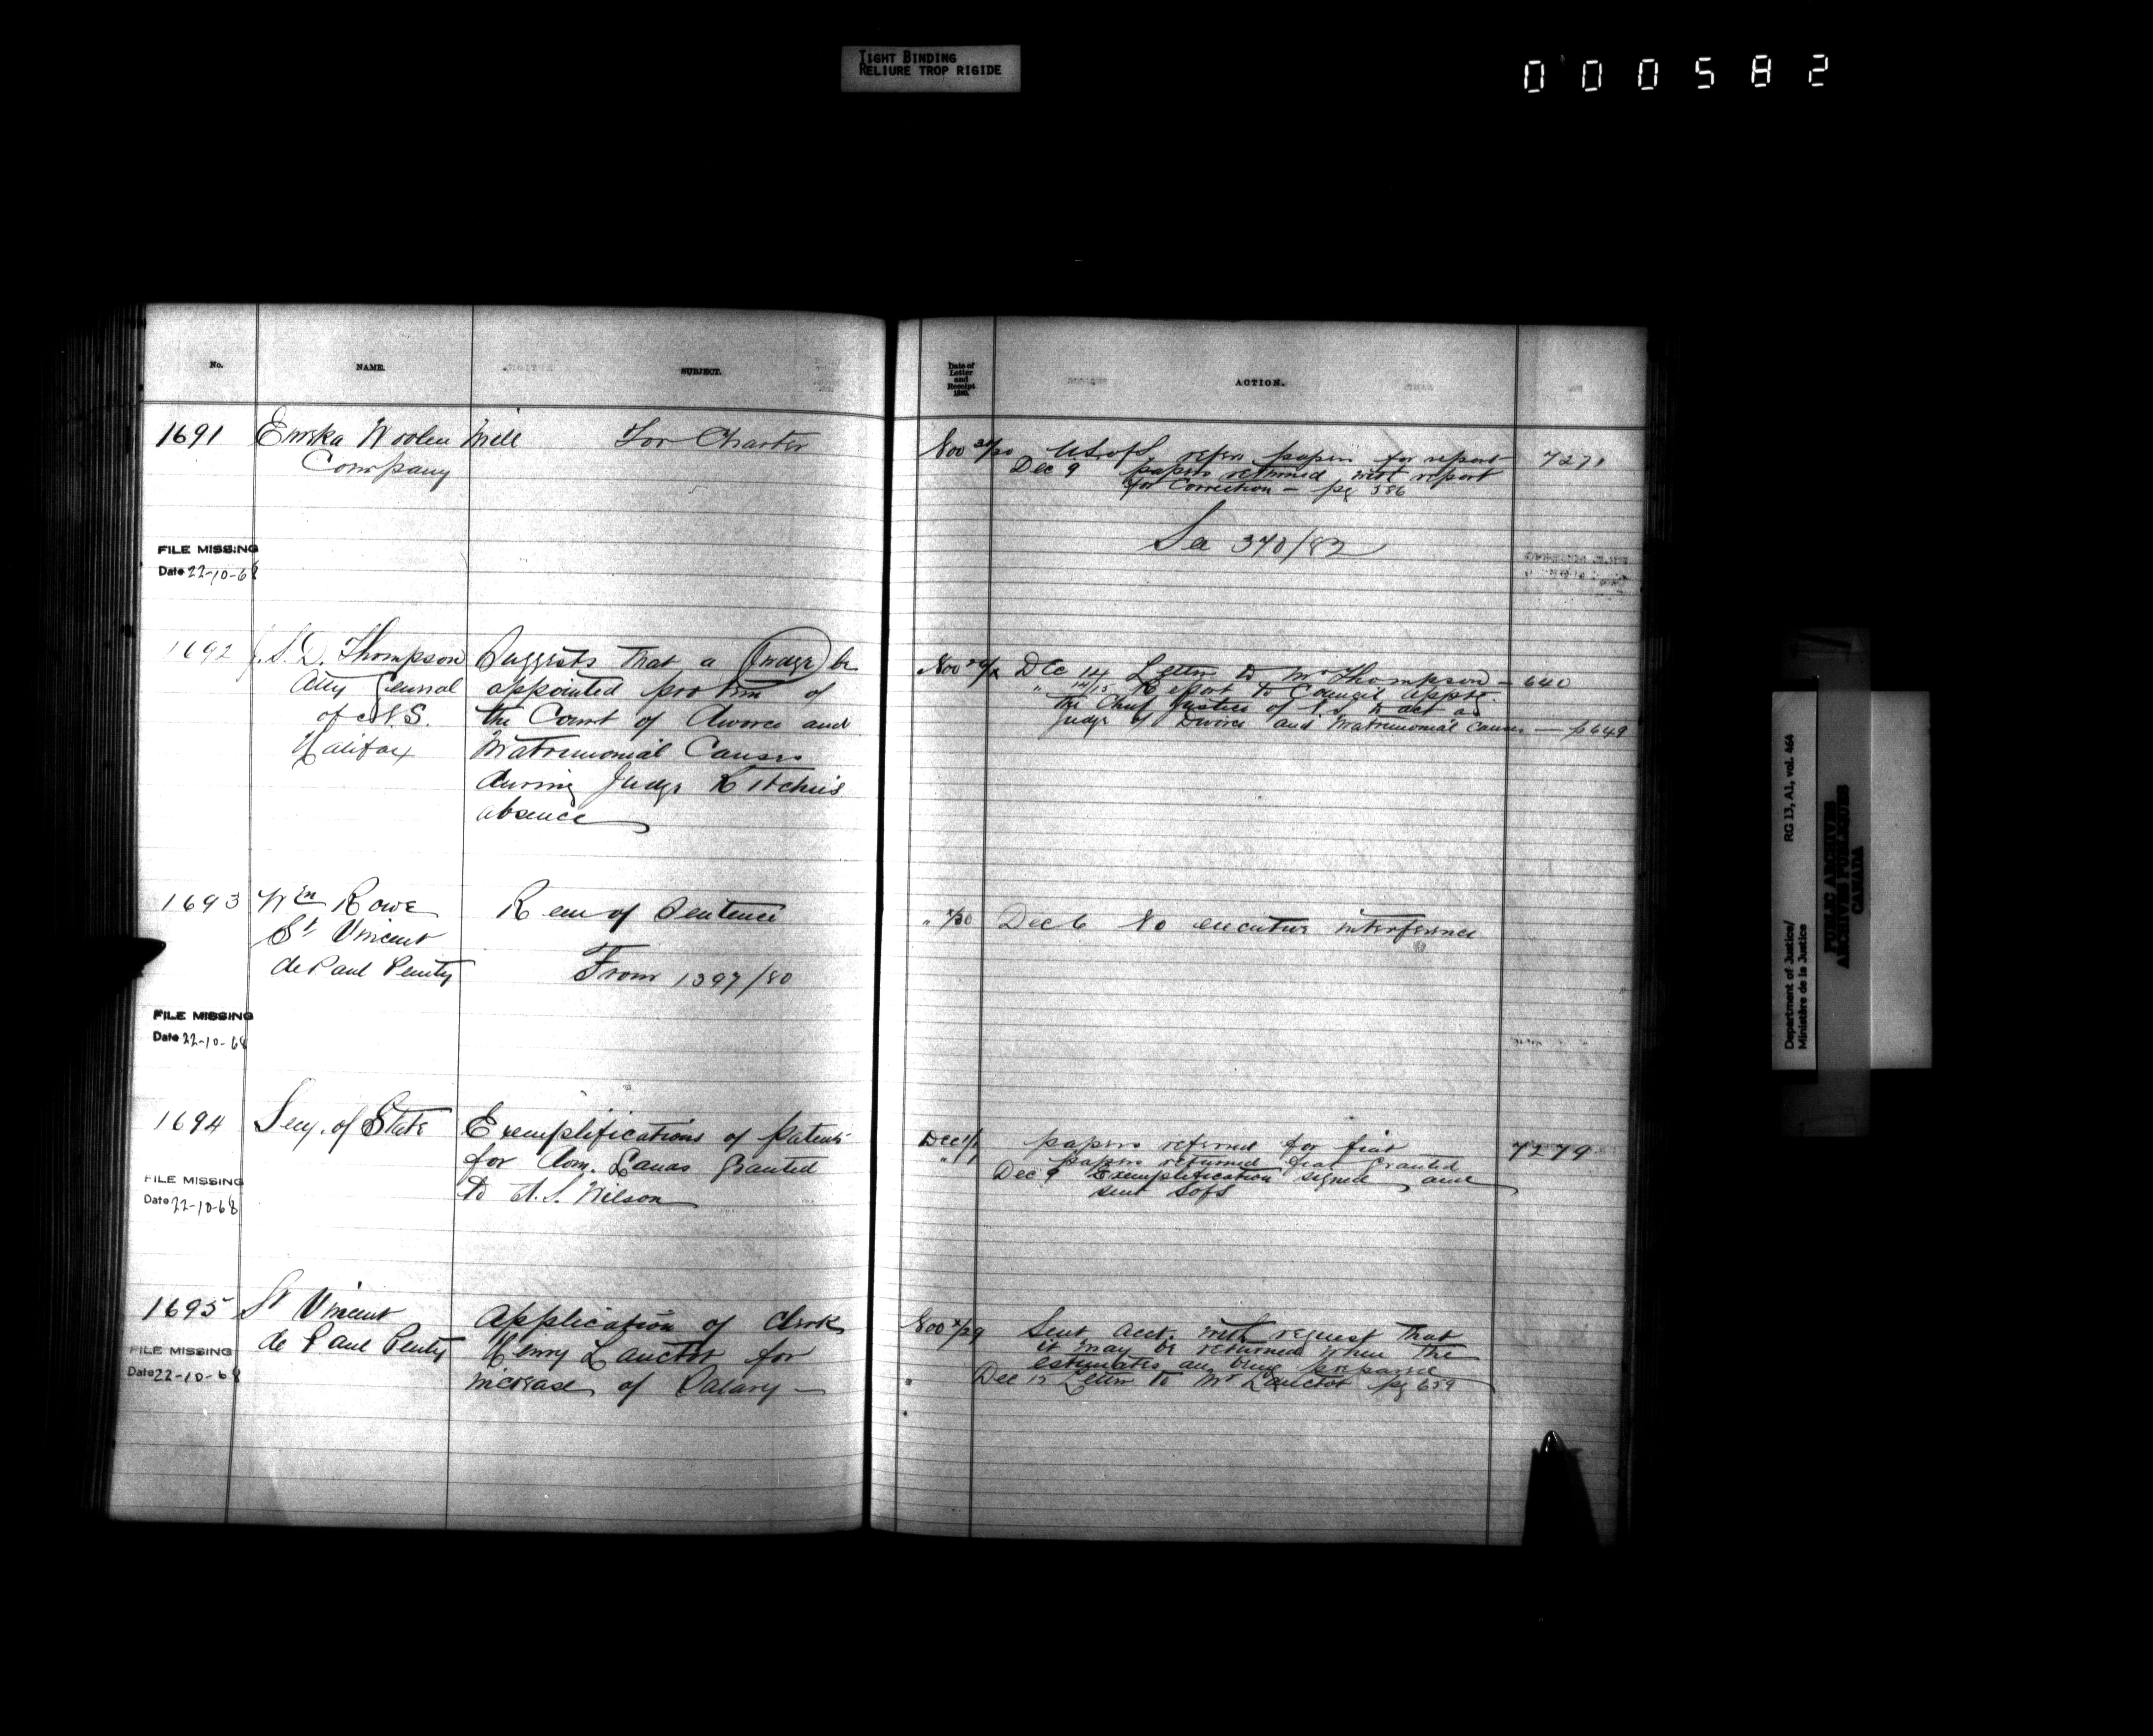 TIGHT BINDING
RELIURE TROP RIGIDE
000582
No.
NAME.
SUBJECT.
1691 Eureka Woolen Mill For Charter
Company
FILE MISSING
Date 22-10-68
1692 J.S.D. Thompson Suggests that a Judge be
Atty General appointed pro tem of
of N.S. the Court of Divorce and
Halifax Matrimonial Causes
during Judge Ritchie's
absence
1693 Wm Rowe Rem of Sentence
St Vincent
de Paul Penty From 1397/80
FILE MISSING
Date 22-10-68
1694 Secy. of State Exemplifications of patents
for Dom. Lands granted
FILE MISSING
Date 22-10-68
to A. S. Wilson
1695 St Vincent Application of Clerk
de Paul Penty Henry Lanctot for
FILE MISSING
Date 22-10-68
increase of Salary —
Date of
Letter
and
Receipt
ACTION.
Nov U.S. of S. refers papers for report 7271
Dec 9 papers returned with report
for Correction — pg 386
See 340/82
Nov Dec 14 Letter to Mr Thompson — 640
" 14/15 Report to Council appts
the Chief Justice of N.S. to act as
Judge of Divorce and Matrimonial Causes — p 649
" /30 Dec 6 No executive interference
Dec 1/1 papers referred for fiat 7279
" /1 papers returned fiat granted
Dec 9 Exemplification signed and
sent S of S
Nov /29 Sent acct. with request that
it may be returned when the
estimates are being prepared
Dec 12 Letter to Mr Lanctot pg 659
Department of Justice/ RG 13, A1, vol. 464
Ministère de la Justice
PUBLIC ARCHIVES
ARCHIVES PUBLIQUES
CANADA